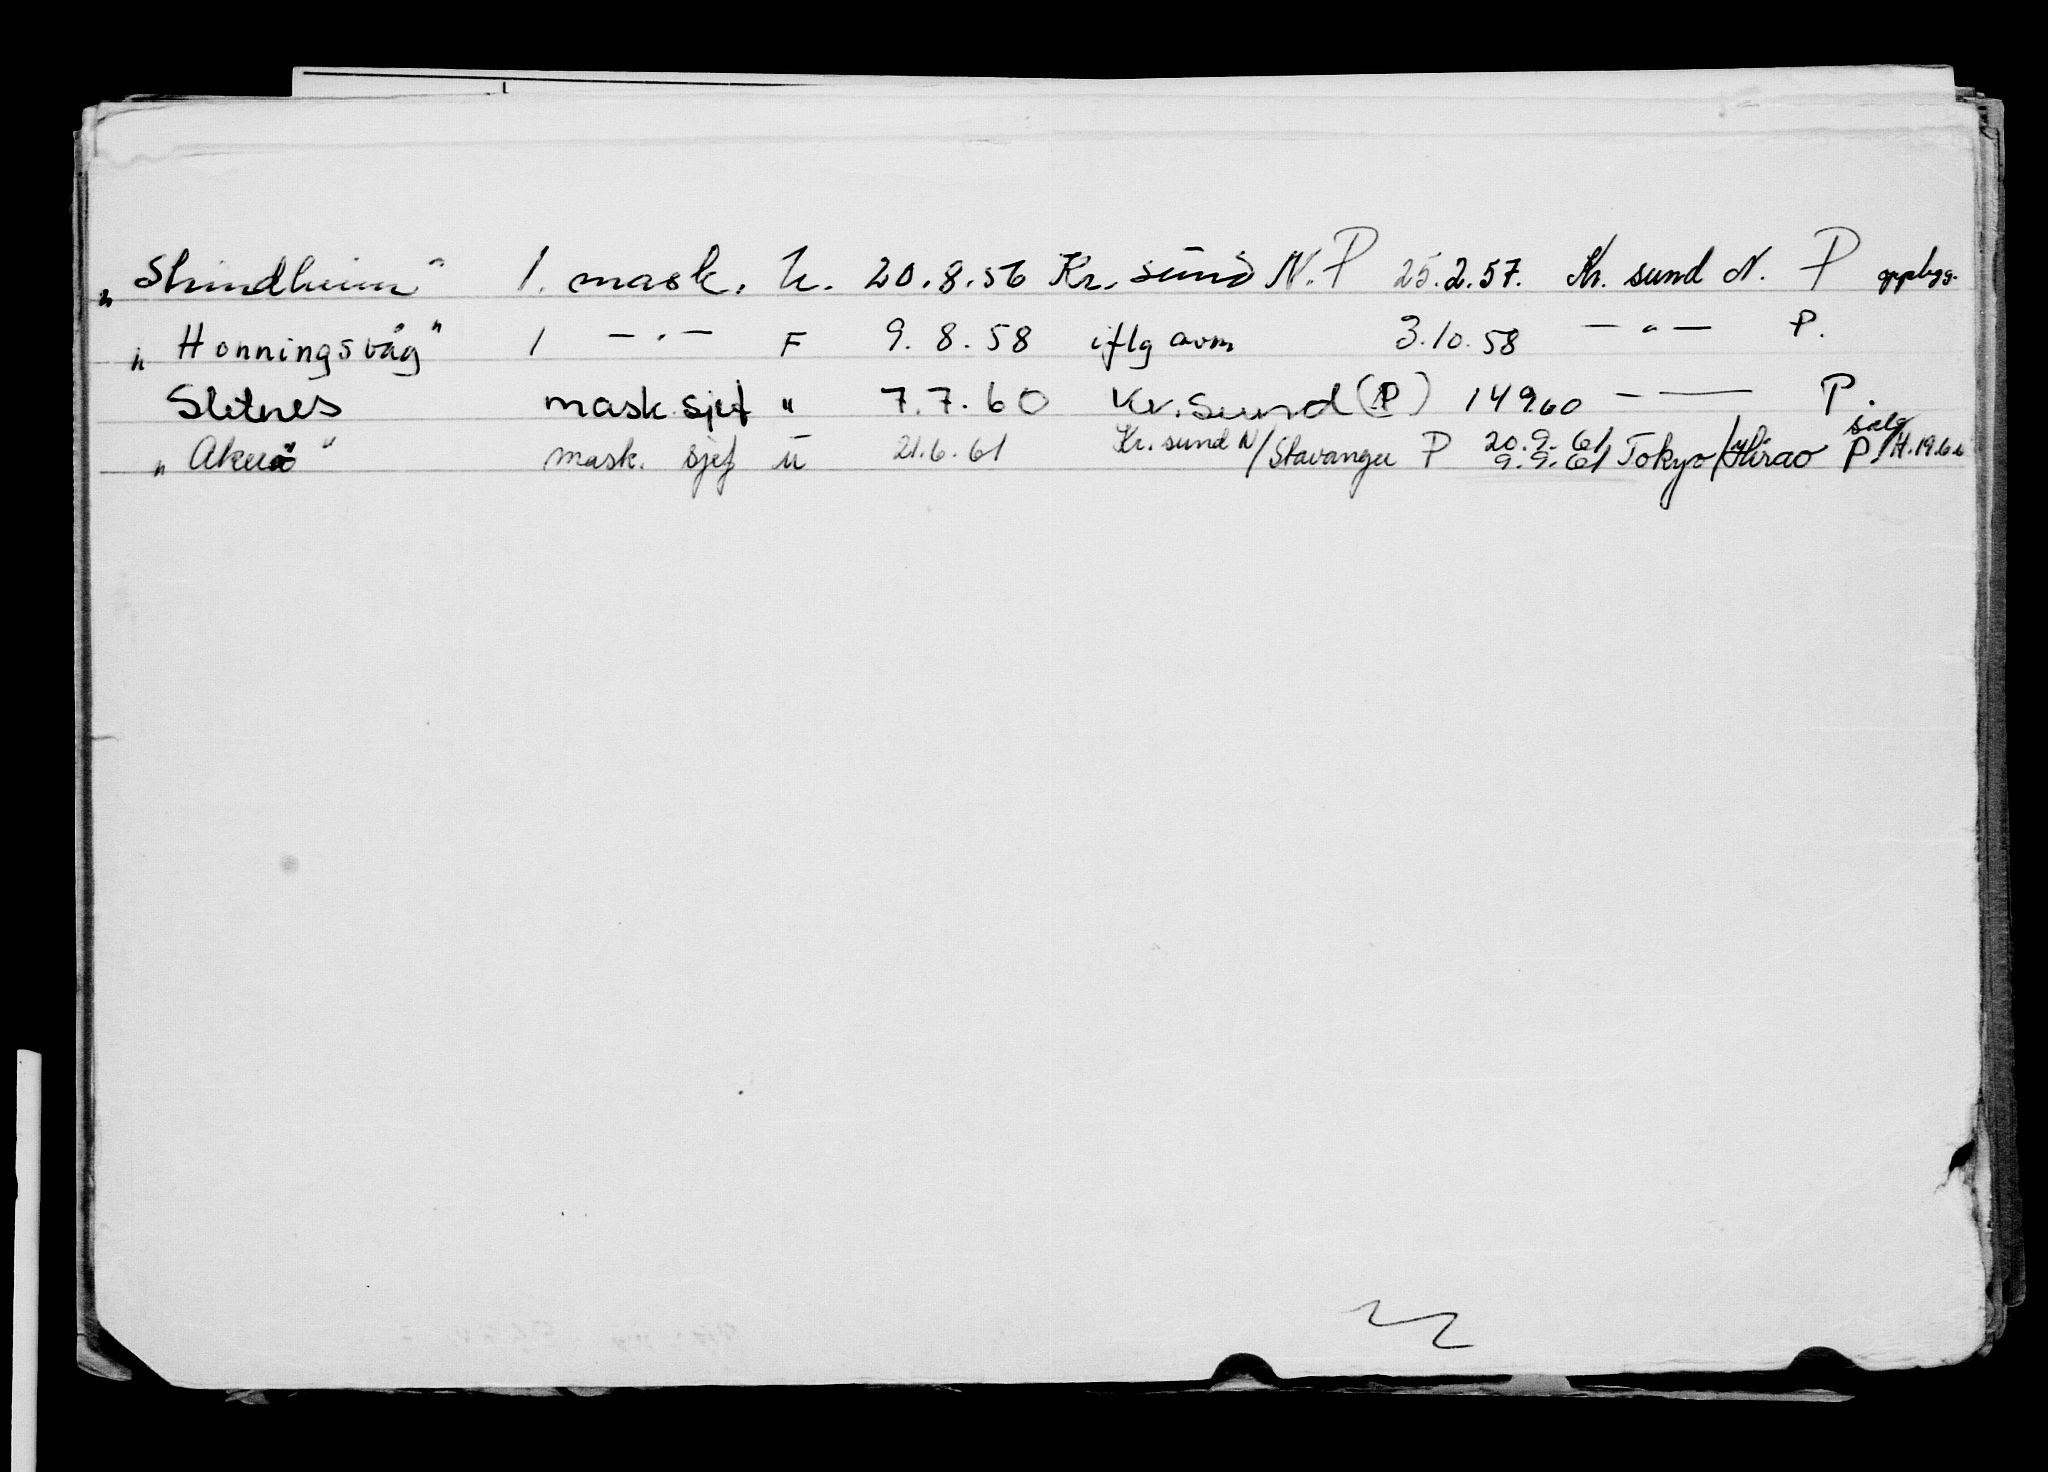 „Strindheim" 1. mask. U. 20.8.56 Kr. sund N. P 25.2.57. Kr. sund N. P oppbygg.
„Honningsvåg" 1 — " — F 9.8.58 iflg avm 3.10.58 — " — P.
Sletnes mask sjef " 7.7.60 Kr. sund (P) 14960 — — P.
„Akerø" mask. sjef U 21.6.61 Kr. sund N/Stavanger P 20.9.61 9.9.61 Tokyo/Hirao P/H.19.6.